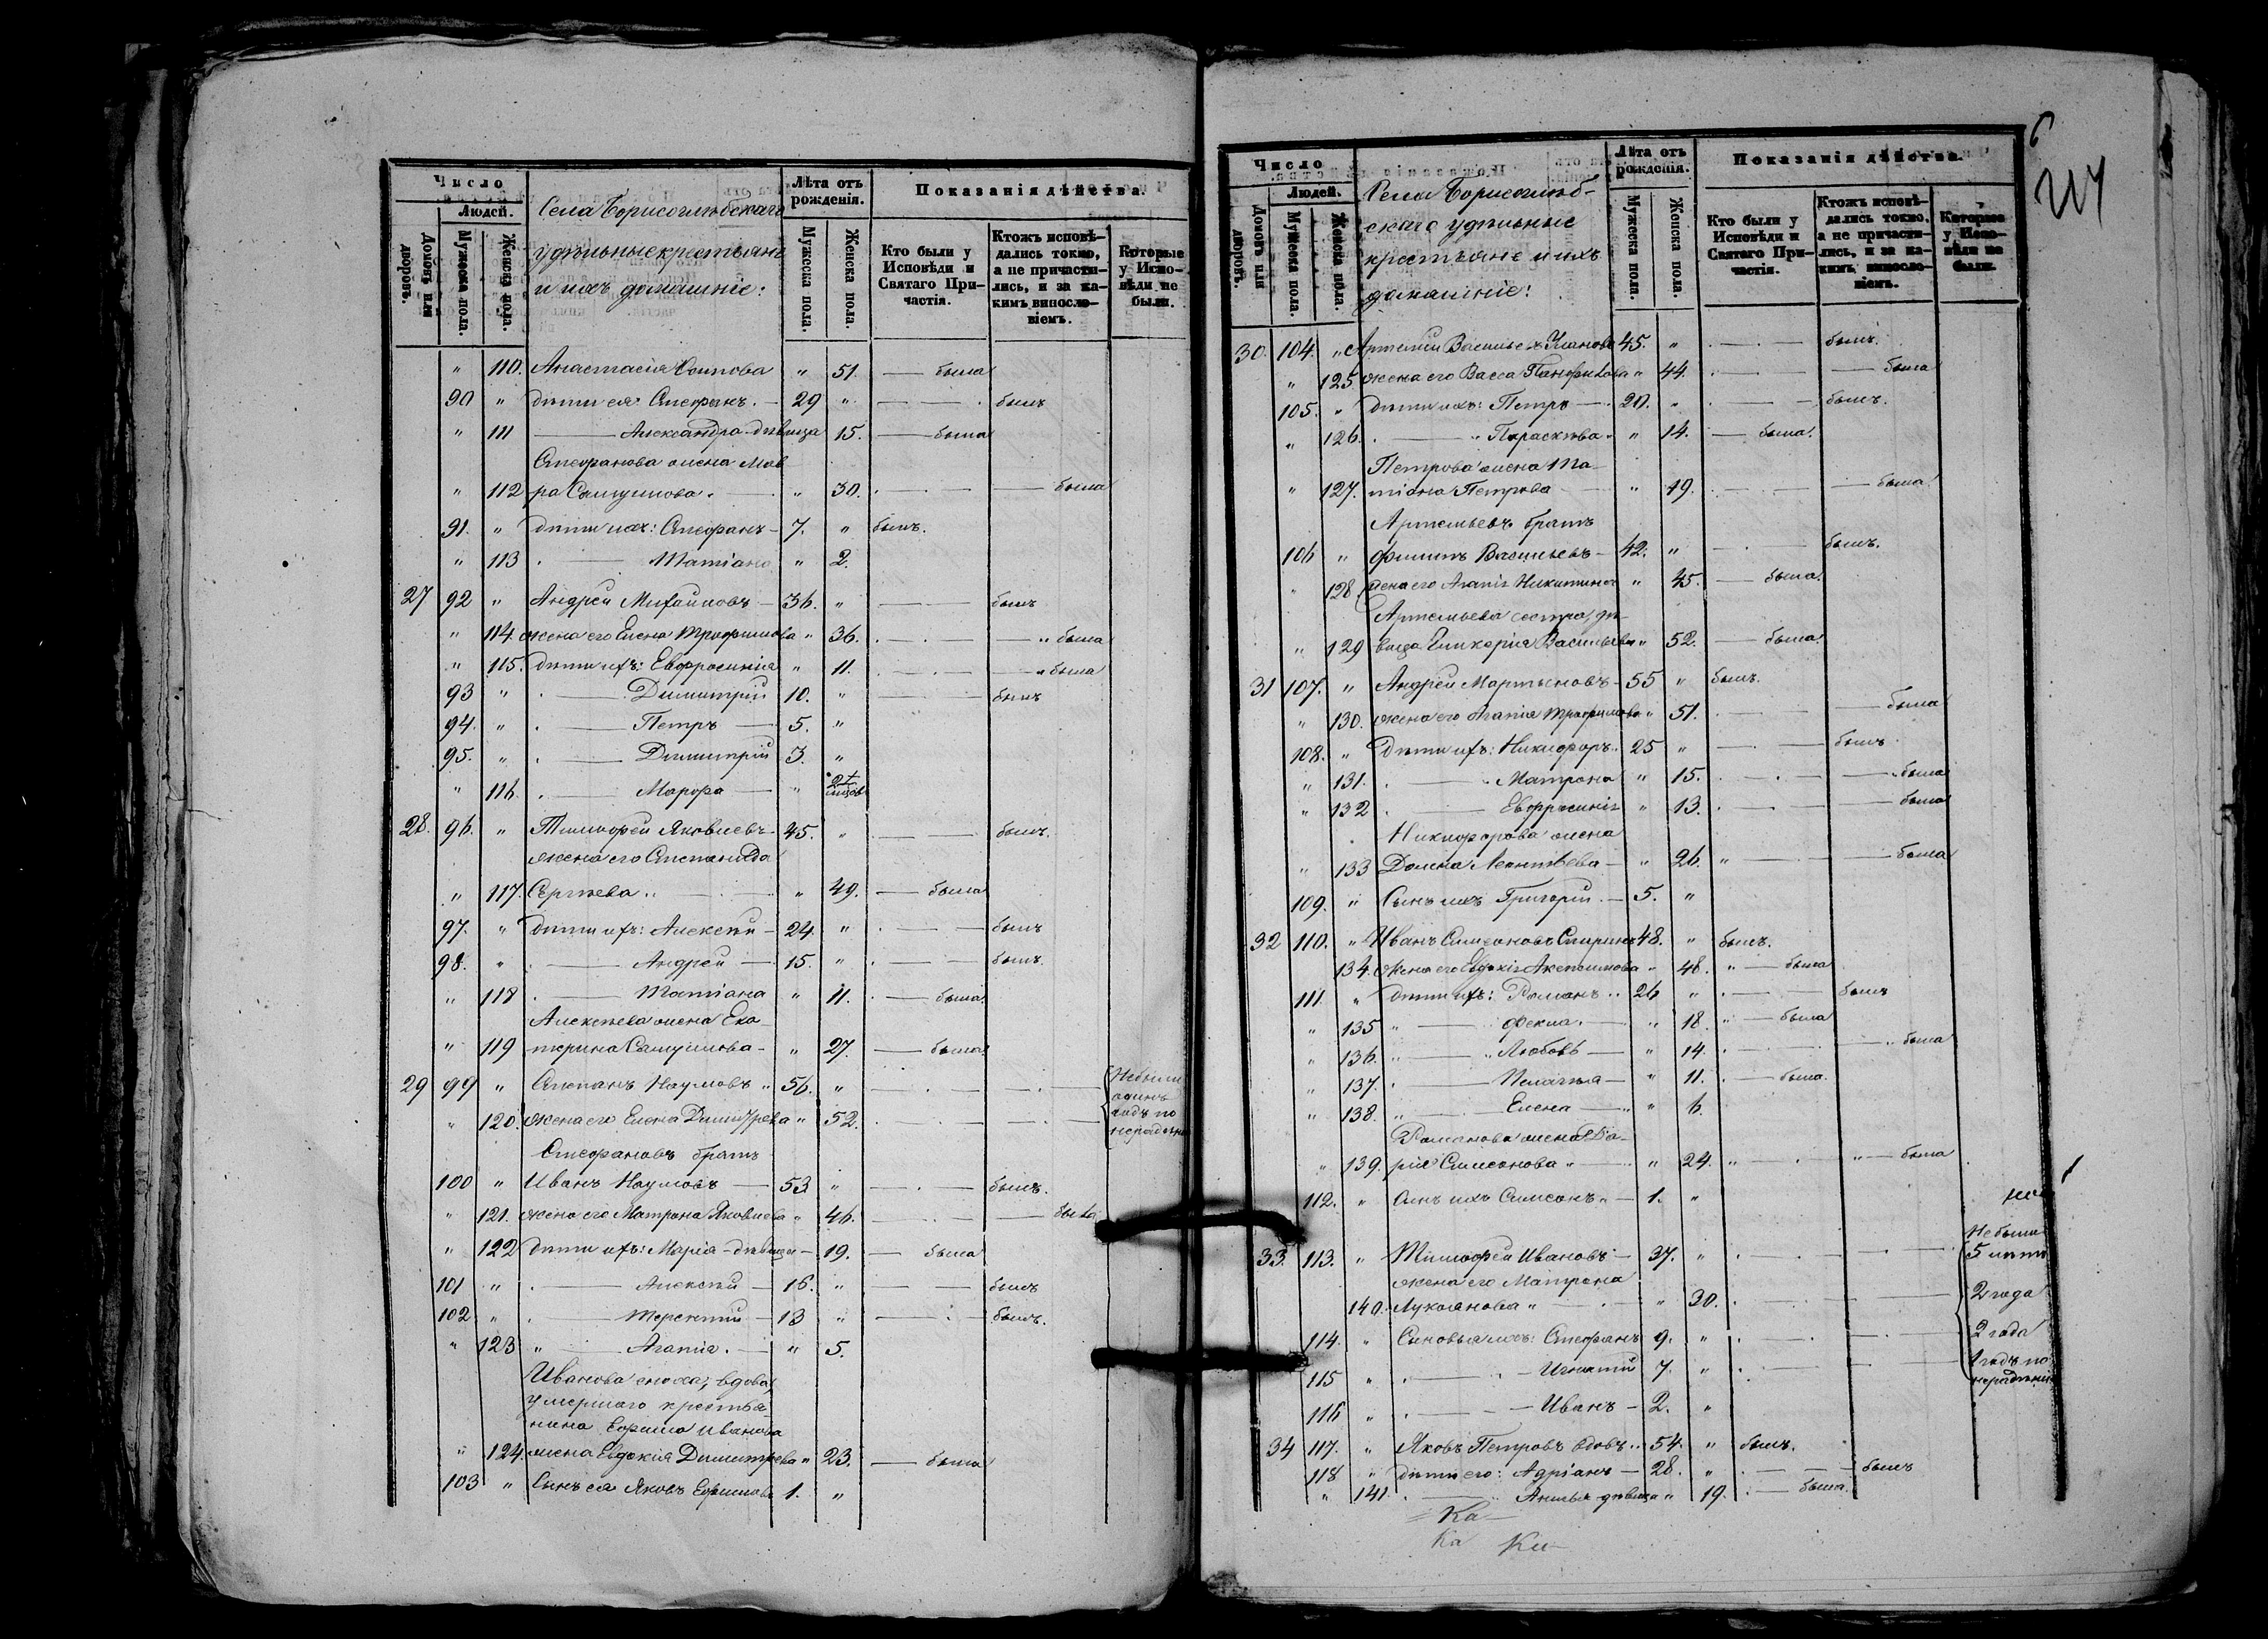 Число
Людей.
Домовъ или дворовъ.
Мужеска пола.
Женска пола.
Села Борисоглѣбскаго
удѣльные крестьяне
и ихъ домашніе:
Лѣта отъ рожденія.
Мужеска пола.
Женска пола.
Показанія дѣйства.
Кто были у Исповѣди и Святаго Причастія.
Ктожъ исповѣдались токмо, а не причастились, и за какимъ винословіемъ.
Которые у Исповѣди не были.
" 110. Анастасія Осипова " 51. — была
90 " дѣти ея: Стефанъ. — 29 " — — былъ
" 111 — Александра дѣвица 15. — была
Стефанова жена Мав
" 112 ра Самуилова. — " 30. — — была
91. " дѣти ихъ: Стефанъ — 7. " былъ.
" 113 — Татіана " 2.
27 92 " Андрей Михайловъ — 36. " — — былъ
" 114. жена его Елена Трофимова " 36. — — " была
" 115. дѣти ихъ: Евфросинія " 11. — — " была
93 " — Димитрій 10. " — — былъ
94. " — Петръ — 5. "
95. " — Димитрій 3. "
" 116. — Марфа — "
28. 96. " Тимофей Яковлевъ 45. " — — былъ.
жена его Степанида
" 117. Сергѣева " 49. — была
97. " дѣти ихъ: Алексѣй — 24. " — — былъ
98. " — Андрей — 15. " — — былъ.
" 118 — Татіана " 11. — была.
Алексѣева жена Ека
" 119 терина Самуилова — " 27. — была.
29 99 " Степанъ Наумовъ " 56. " — — Не были
одинъ
" 120. жена его Елена Димитрева " 52. — — годъ по
нерадѣнію
Стефановъ братъ
100 " Иванъ Наумовъ — 53 " — — былъ.
" 121. жена его Матрона Яковлева " 46. — — была
" 122 дѣти ихъ: Марія — дѣвица — 19. — была
101 " — Алексѣй — 16. " — — былъ
102 " — Терентій — 13 " — — былъ.
" 123 " — Агапія. — " 5.
Иванова сноха, вдова,
умершаго крестья
нина Ефима Иванова
" 124. жена Евдокія Димитрева " 23. — была
103 " Сынъ ея Яковъ Ефимовъ 1. "
6
Число
Людей.
Домовъ или дворовъ.
Мужеска пола.
Женска пола.
Села Борисоглѣб-
скаго удѣльные
крестьяне и ихъ
домашніе:
Лѣта отъ рожденія.
Мужеска пола.
Женска пола.
Показанія дѣйства.
Кто были у Исповѣди и Святаго Причастія.
Ктожъ исповѣдались токмо, а не причастились, и за какимъ винословіемъ.
Которые у Исповѣди не были.
30. 104. " Артемій Васильевъ Улановъ 45. " — былъ.
" 125 жена его Васса Панфилова " 44. — — была
105. " дѣти ихъ: Петръ — 20. " — — былъ.
" 126. — " Параскева " 14. — была.
Петрова жена Та
" 127. тіана Петрова — " 19. — — была.
Артемьевъ братъ
106 " Филипъ Васильевъ — 42. " — — былъ.
" 128 жена его Агапія Никитина " 45. — была.
Артемьева сестра, дѣ
" 129 вица Гликерія Васильева " 52. — была.
31 107. " Андрей Мартыновъ — 55 " былъ.
" 130. жена его Агапія Трофимова " 51. — — была
108. " Дѣти ихъ: Никифоръ. 25 " — — былъ
" 131. — Матрона " 15. — — была
" 132 — Евфросинія " 13. — — была
Никифорова жена
" 133 Домна Леонтьева — " 26. " — — была
109. " Сынъ ихъ Григорій. — 5. "
32 110. " Иванъ Симеоновъ Спиринъ 48. " былъ.
134. жена его Евдокія Аксентьева " 48. " — была
111. " дѣти ихъ: Романъ 26 " — — былъ
" 135 " — Фекла. — " 18. " — была
" 136. " — " Любовь — " 14. — " была
" 137. — Пелагѣя — " 11. — была.
" 138. " — Елена — " 6.
Романова жена Да-
" 139. рія Симеонова " — " 24. " — " — была
112. " Сынъ ихъ Симеонъ. — 1. "
33. 113. " Тимофей Ивановъ — 37. " — — Не были
5 лѣтъ
жена его Матрона
140. Лукьянова " — " 30. — — 2 года
114. " Сыновья ихъ: Стефанъ 9. " — — 2 года
115 " — Игнатій 7. " — — 1 годъ по
нерадѣнію
116 " — Иванъ — 2. "
34 117. " Яковъ Петровъ вдовъ 54. " былъ.
118 " дѣти его: Адріанъ — 28. " — — былъ
" 141. — Анисья дѣвица " 19. — была.
Ка
Ка Ки